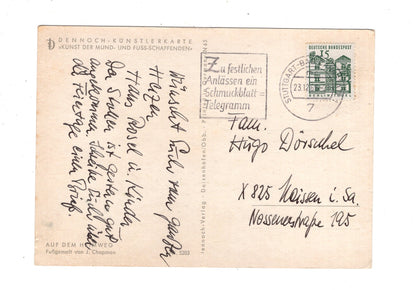 DENNOCH-KÜNSTLERKARTE
»KUNST DER MUND- UND FUSS-SCHAFFENDEN«
Wünscht Euch von ganzem
Herzen
Hans Rosel u. Kinder
Der Stollen ist gestern gut
angekommen. Schreibe Euch über
die Feiertage einen Brief.
AUF DEM HEIMWEG
Fußgemalt von J. Chapman
5203
Dennoch-Verlag Deisenhofen/Obb.
Zu festlichen
Anlässen ein
Schmuckblatt=
Telegramm
STUTTGART-BA
23.12
7
DEUTSCHE BUNDESPOST
15
Fam.
Hugo Dörschel
X 825 Meissen i. Sa.
Nossenerstraße 195